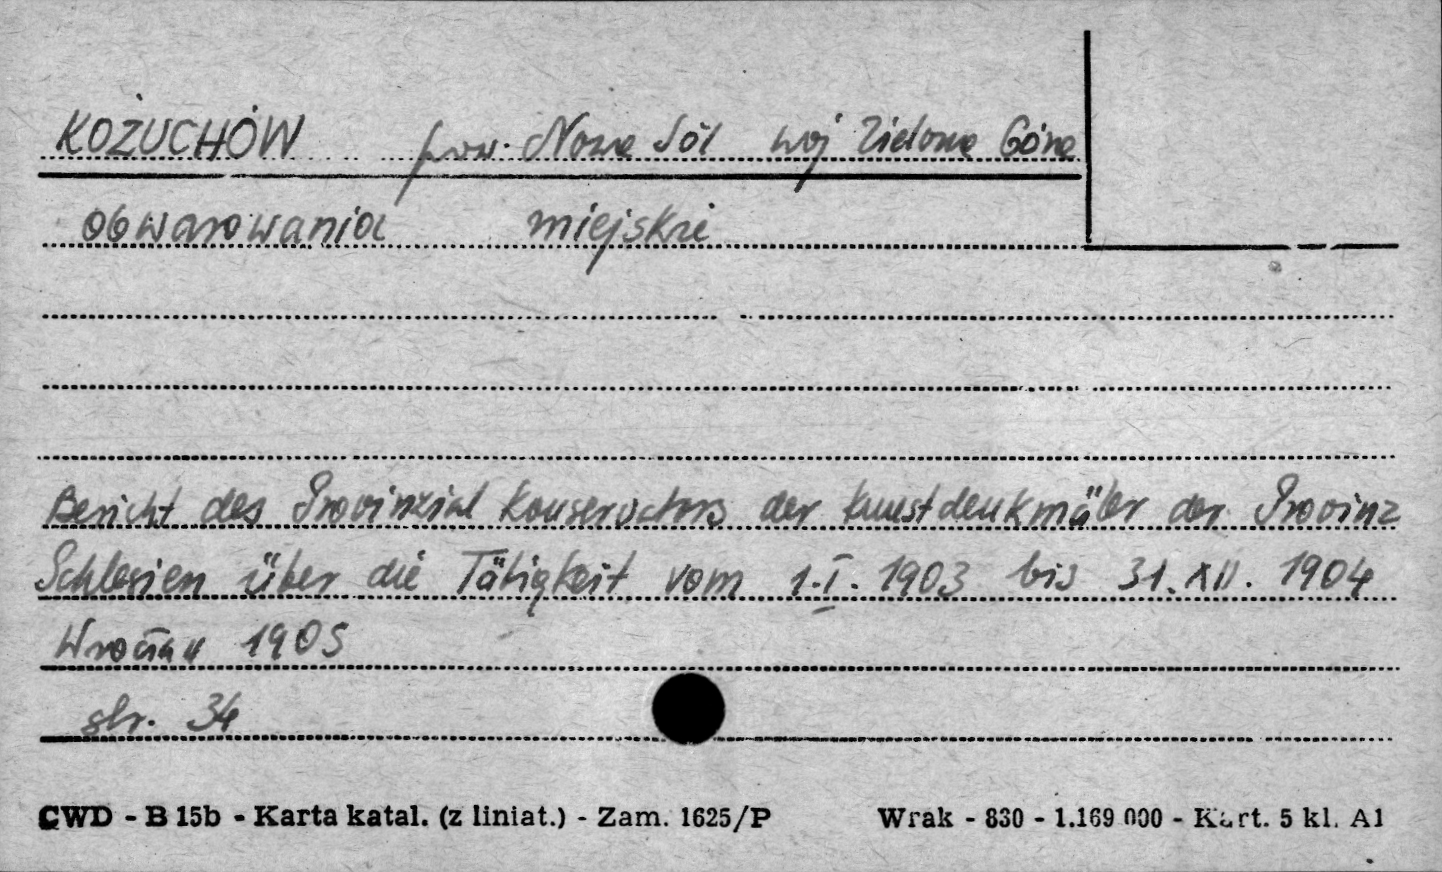 KOŻUCHÓW pow. Nowa Sól woj Zielona Góra
obwarowania miejskie
Bericht des Provinzial Konservators der Kunstdenkmäler der Provinz
Schlesien über die Tätigkeit vom 1.I.1903 bis 31.XII.1904
Wrocław 1905
str. 34
CWD - B 15b - Karta katal. (z liniat.) - Zam. 1625/P Wrak - 830 - 1.169 000 - Kart. 5 kl. A1